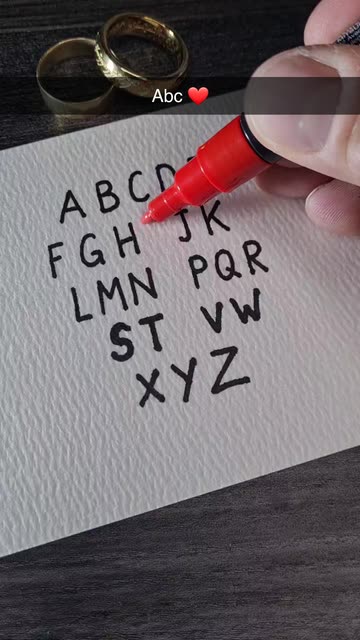 Abc ❤️
ABCD
FGH JK
LMN PQR
ST VW
XYZ